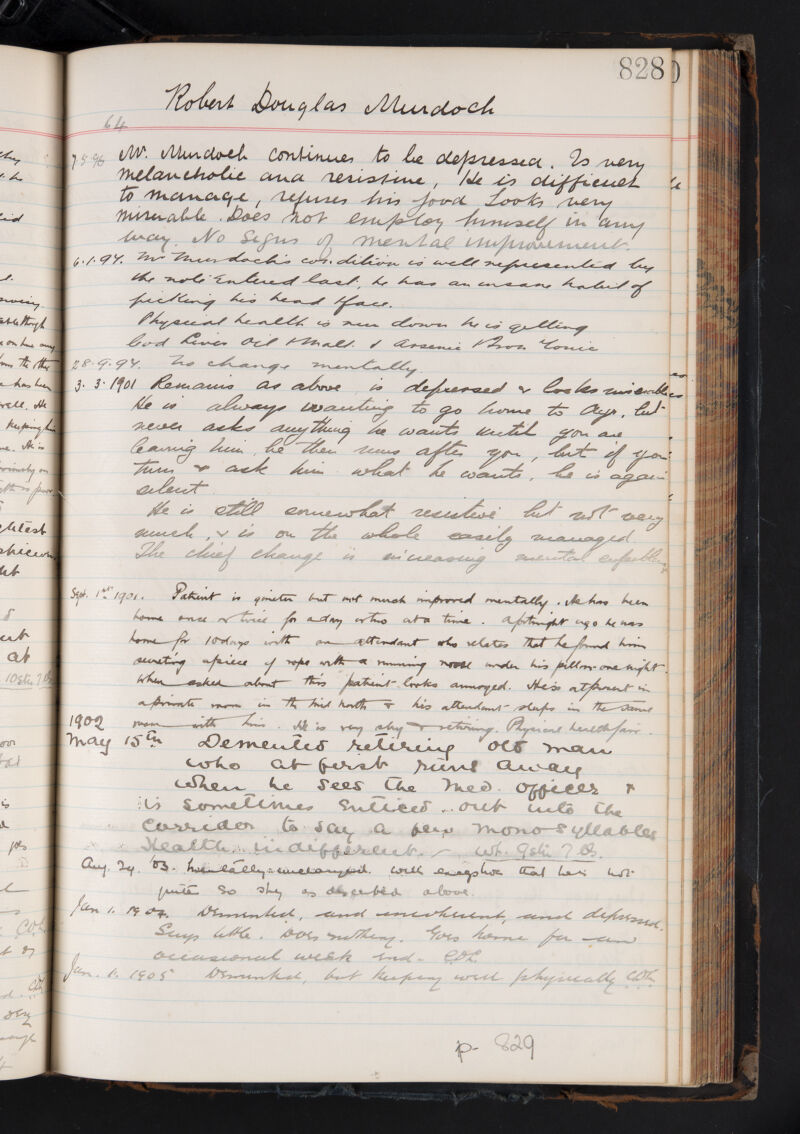 828
Robert Douglas Murdoch
64
7.8.96 Mr. Murdoch continues to be depressed. Is very
melancholic and resistive, He is difficult
to manage, refuses his food Looks very
miserable. Does not employ himself in any
way. No signs of mental improvement.
6.1.97. Mr Murdoch's condition is well represented by
the note entered last. he has an insane habit of
picking his head & face.
Physical health is run down he is getting
Cod Liver Oil & Malt. & Arsenic & Iron Tonic
28.9.97. No change mentally
3.3.1901 Remains as above, is depressed & looks miserable
He is always wanting to go home to Ayr, but
never asks anything he wants until you are
leaving him, he then runs after you, but if you
turn & ask him what he wants, he is again
silent.
He is still somewhat resistive but not very
much, & is on the whole easily managed
The chief change is increasing mental
Sept. 1st 1901. Patient is quieter but not much improved mentally. He has been
home once or twice for a day or two at a time. A fortnight ago he was
home for 10 days with an attendant who relates that he found him
secreting a piece of rope with a running noose under his pillow one night.
When asked about this patient looks annoyed. He is at present in
a private room in the mid north & his attendant sleeps in the same
room with him. He is very shy & retiring. Physical health fair.
1902
May 15th Demented retiring old man
who at first runs away
when he sees the Med. officer &
is sometimes enticed out into the
corridor to say a few monosyllables
Health indifferent. Wt. 9sts 7 lbs.
Aug. 24. '03. Mentally unchanged. with exception that he is not
quite so shy as described above.
Jan 1. 1904. Demented, and incoherent, and depressed.
Says little. Does nothing. Goes home for an
occasional week end.
Jan. 1. 1905 Demented, but keeping well physically
p- 829